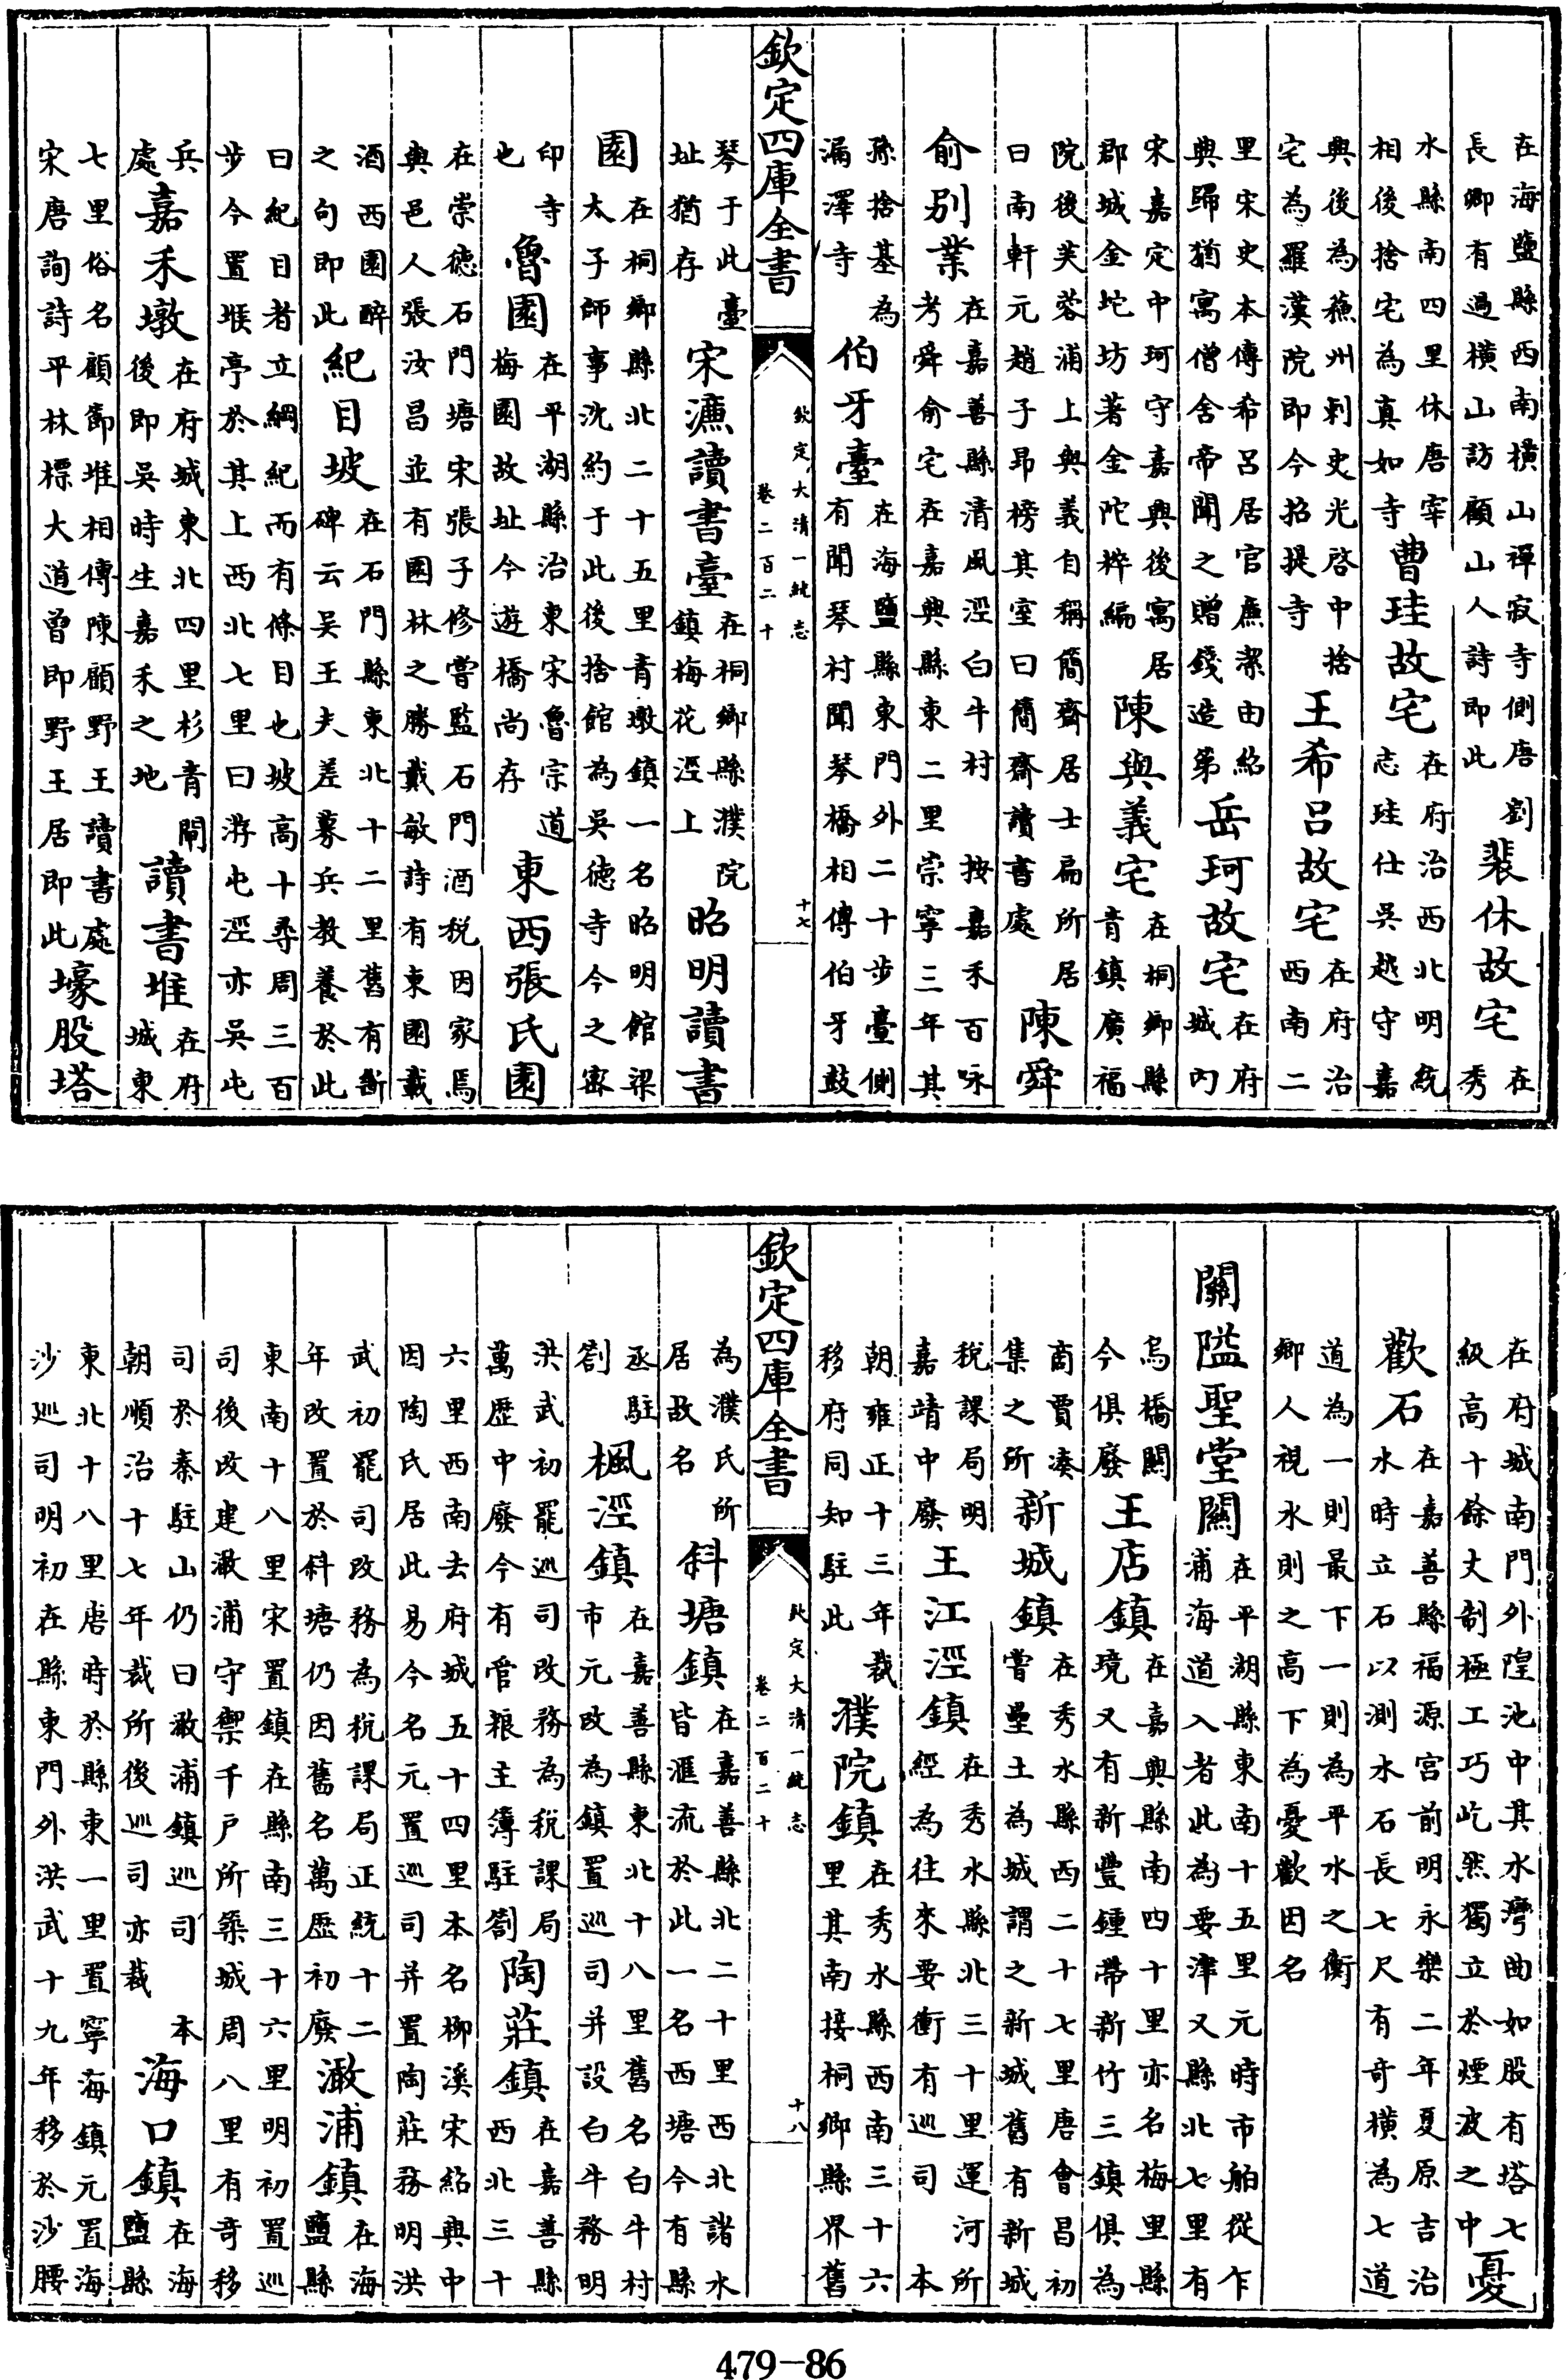 在海鹽縣西南橫山禪寂寺側唐劉長卿有過橫山訪顧山人詩即此裴休故宅在秀
水縣南四里休唐宰相後捨宅為真如寺曹珪故宅在府治西北明統志珪仕吳越守嘉
興後為蘇州刺史光啓中捨宅為羅漢院即今招提寺王希呂故宅在府治西南二
里宋史本傳希呂居官廉潔由紹興歸猶寓僧舍帝聞之贈錢造第岳珂故宅在府城內
宋嘉定中珂守嘉興後寓居郡城金坨坊著金陀粹編陳與義宅在桐鄉縣青鎮廣福
院後芙蓉浦上與義自稱簡齋居士扁所居曰南軒元趙子昂榜其室曰簡齋讀書處陳舜
俞別業在嘉善縣清風涇白牛村按嘉禾百咏考舜俞宅在嘉興縣東二里崇寧三年其
孫捨基為漏澤寺伯牙臺在海鹽縣東門外二十步臺側有聞琴村聞琴橋相傳伯牙鼓
欽定四庫全書 欽定大清一統志 卷二百二十 十七
琴于此臺址猶存宋濂讀書臺在桐鄉縣濮院鎮梅花涇上昭明讀書
園在桐鄉縣北二十五里青墩鎮一名昭明館梁太子師事沈約于此後捨館為吳德寺今之密
印寺也魯園在平湖縣治東宋魯宗道梅園故址今遊橋尚存東西張氏園
在崇德石門塘宋張子修嘗監石門酒稅因家焉與邑人張汝昌並有園林之勝戴敏詩有東園載
酒西園醉之句即此紀目坡在石門縣東北十二里舊有斷碑云吳王夫差募兵教養於此
曰紀目者立綱紀而有條目也坡高十尋周三百步今置堠亭於其上西北七里曰游屯涇亦吳屯
兵處嘉禾墩在府城東北四里杉青閘後即吳時生嘉禾之地讀書堆在府城東
七里俗名顧節堆相傳陳顧野王讀書處宋唐詢詩平林標大道曾即野王居即此壕股塔
在府城南門外隍池中其水灣曲如股有塔七級高十餘丈制極工巧屹然獨立於煙波之中憂
歡石在嘉善縣福源宮前明永樂二年夏原吉治水時立石以測水石長七尺有奇橫為七道
道為一則最下一則為平水之衡鄉人視水則之高下為憂歡因名
關隘聖堂關在平湖縣東南十五里元時市舶從乍浦海道入者此為要津又縣北七里有
烏橋關今俱廢王店鎮在嘉興縣南四十里亦名梅里縣境又有新豐鍾帶新竹三鎮俱為
商賈湊集之所新城鎮在秀水縣西二十七里唐會昌初嘗壘土為城謂之新城舊有新城
稅課局明嘉靖中廢王江涇鎮在秀水縣北三十里運河所經為往來要衝有巡司本
朝雍正十三年裁移府同知駐此濮院鎮在秀水縣西南三十六里其南接桐鄉縣界舊
欽定四庫全書 欽定大清一統志 卷二百二十 十八
為濮氏所居故名斜塘鎮在嘉善縣北二十里西北諸水皆滙流於此一名西塘今有縣
丞駐劄楓涇鎮在嘉善縣東北十八里舊名白牛村市元改為鎮置巡司并設白牛務明
洪武初罷巡司改務為稅課局萬歷中廢今有管糧主簿駐劄陶莊鎮在嘉善縣西北三十
六里西南去府城五十四里本名柳溪宋紹興中因陶氏居此易今名元置巡司并置陶莊務明洪
武初罷司改務為稅課局正統十二年改置於斜塘仍因舊名萬歷初廢澉浦鎮在海鹽縣
東南十八里宋置鎮在縣南三十六里明初置巡司後改建澉浦守禦千戶所築城周八里有奇移
司於秦駐山仍曰澉浦鎮巡司本朝順治十七年裁所後巡司亦裁海口鎮在海鹽縣
東北十八里唐時於縣東一里置寧海鎮元置海沙巡司明初在縣東門外洪武十九年移於沙腰
479-86